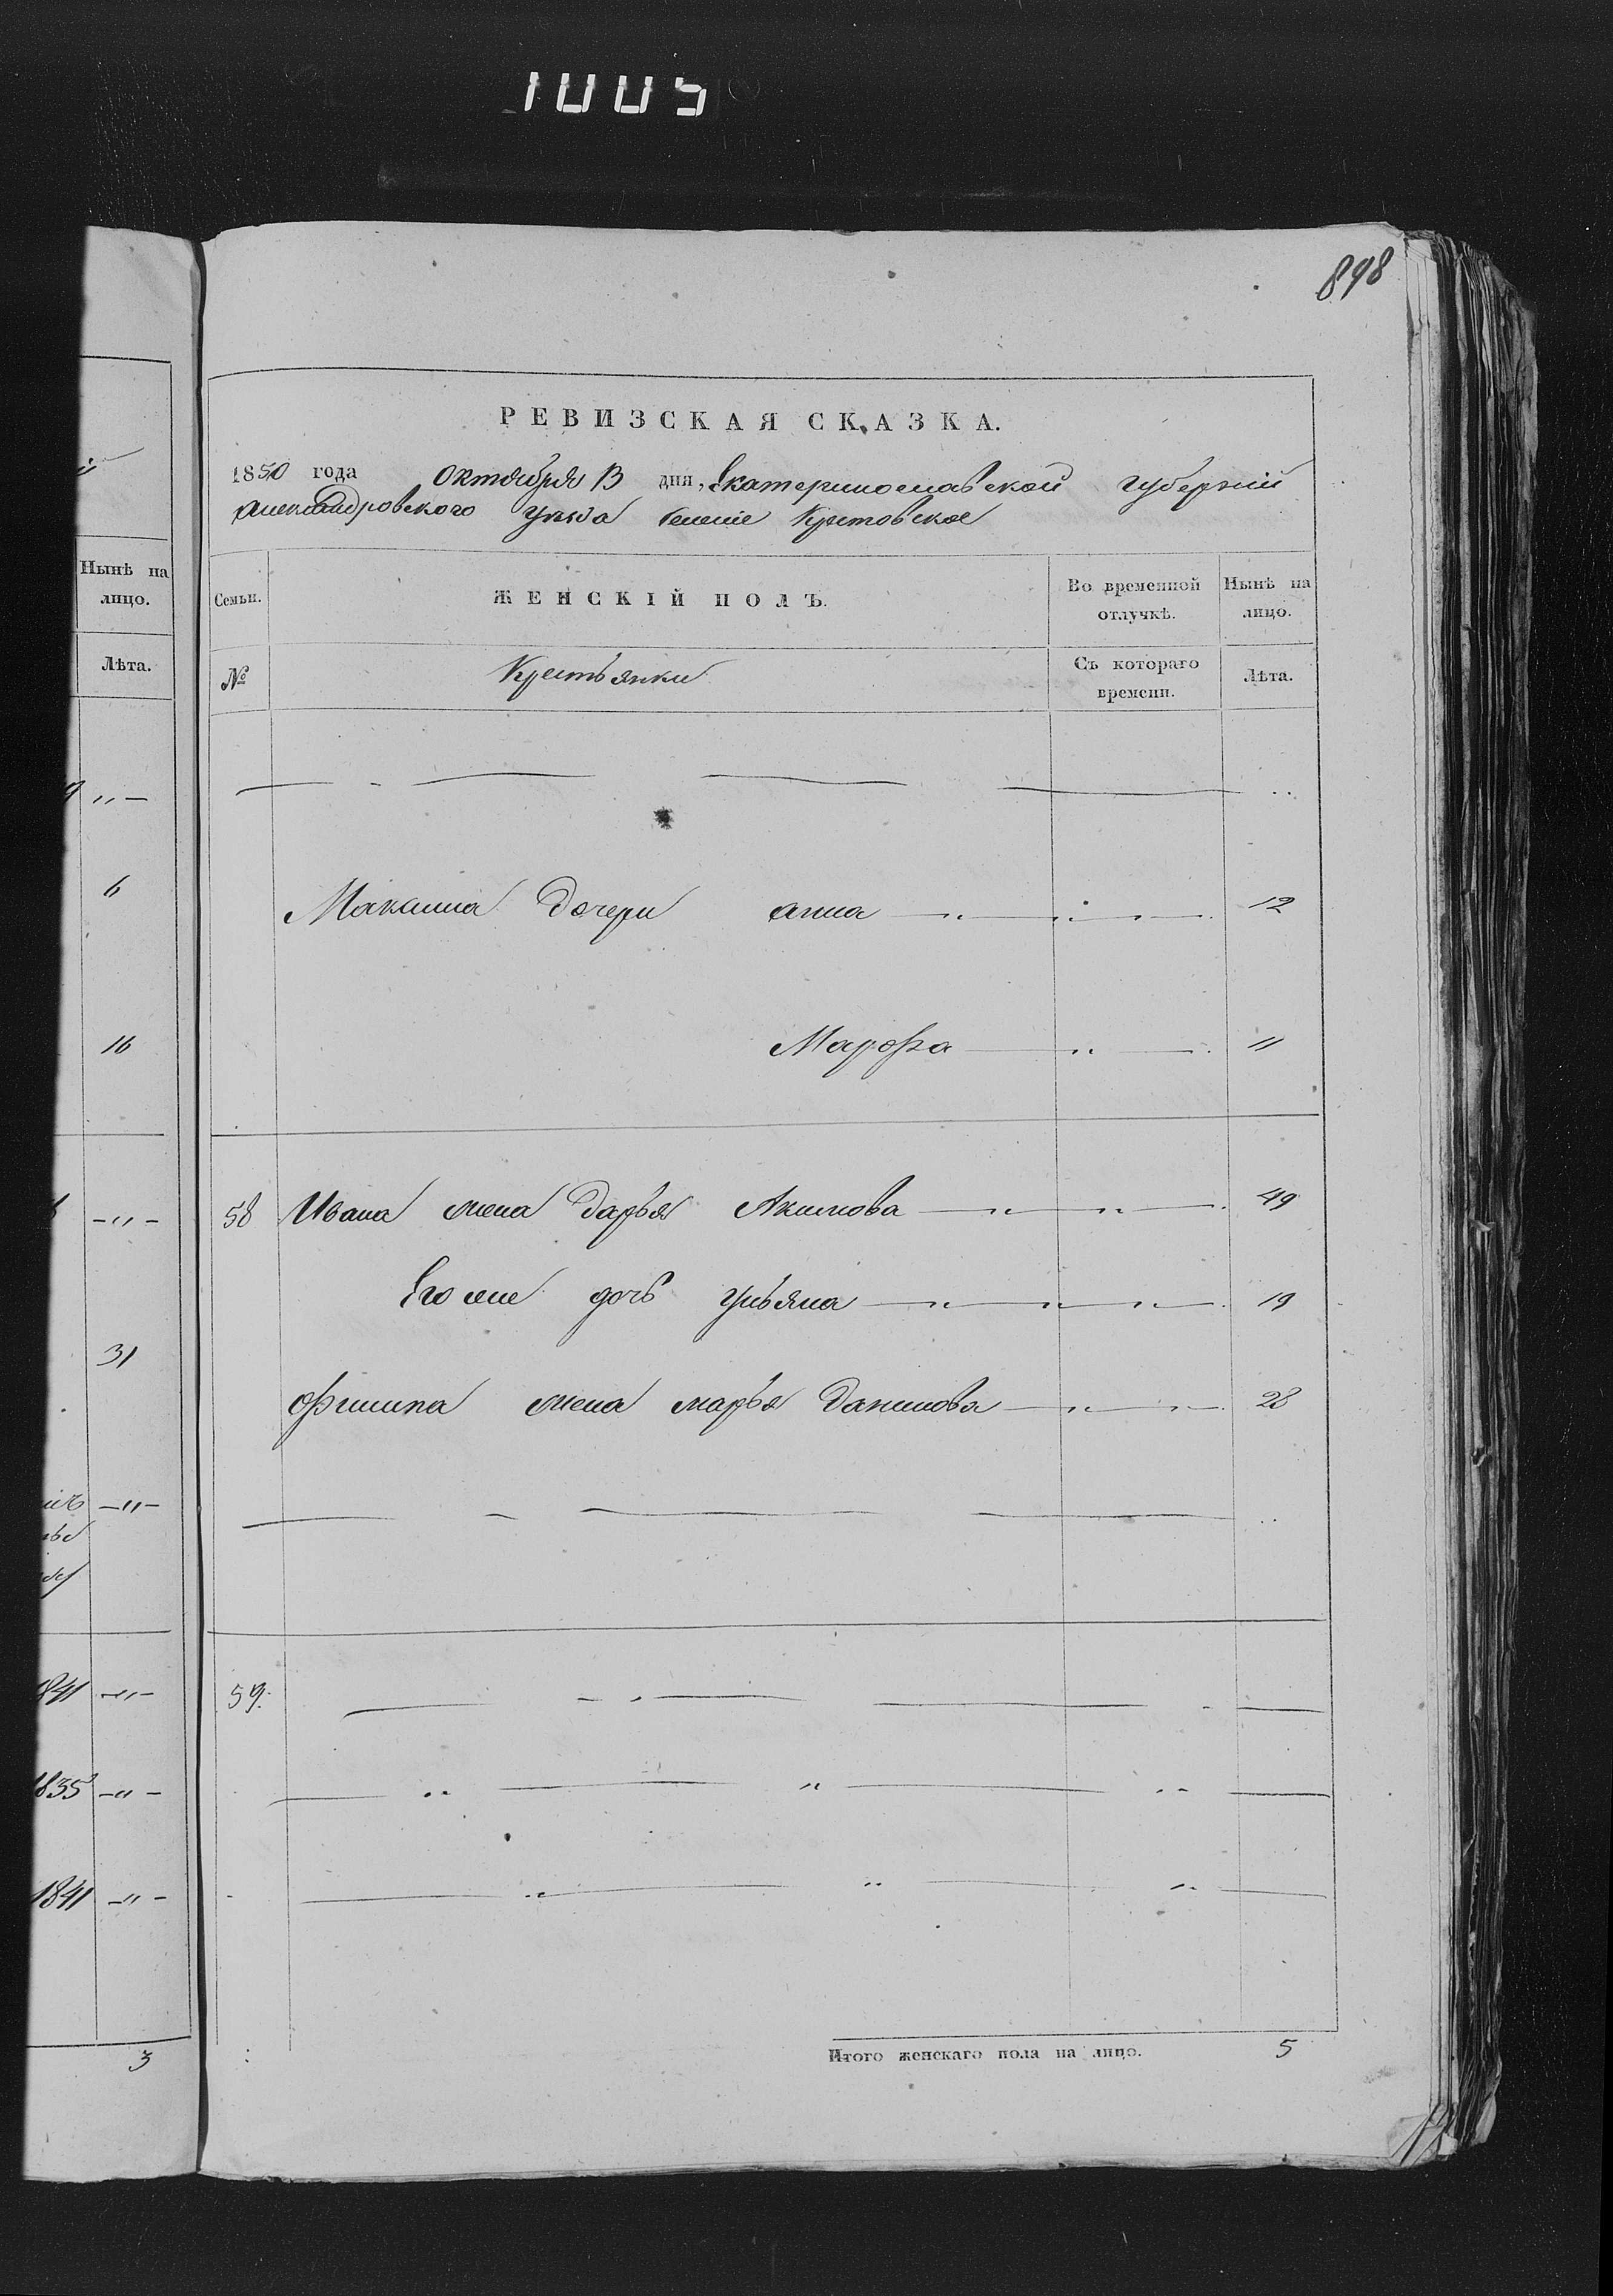 1005
898
РЕВИЗСКАЯ СКАЗКА.
1850 года Октября 13 дня, Екатеринославской губернии
Александровского уезда селение Кретовское
Семьи.
ЖЕНСКІЙ ПОЛЪ.
Во временной отлучкѣ.
Нынѣ на лицо.
№
Крестьянки
Съ котораго времени.
Лѣта.
Максима дочери анна 12
Марфа 11
58 Ивана жена дарья Акимова 49
Его же дочь ульяна 19
филипа жена марья данилова 28
59.
Итого женскаго пола на лицо. 5
Нынѣ на лицо.
Лѣта.
6
16
31
1841
1835
1841
3